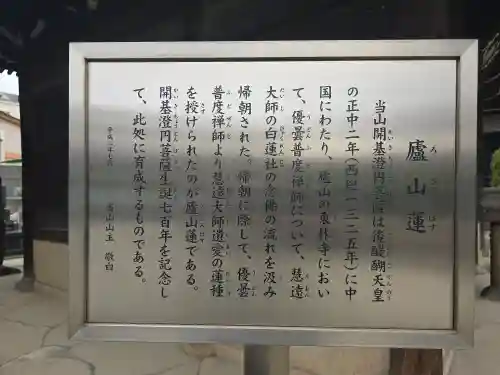 廬山蓮
当山開基澄円菩薩は後醍醐天皇
の正中二年(西暦一三二五年)に中
国にわたり、廬山の東林寺におい
て、優曇普度禅師について、慧遠
大師の白蓮社の念佛の流れを汲み
帰朝された。帰朝に際して、優曇
普度禅師より慧遠大師遺愛の蓮種
を授けられたのが廬山蓮である。
開基澄円菩薩生誕七百年を記念し
て、此処に育成するものである。
山主 敬白